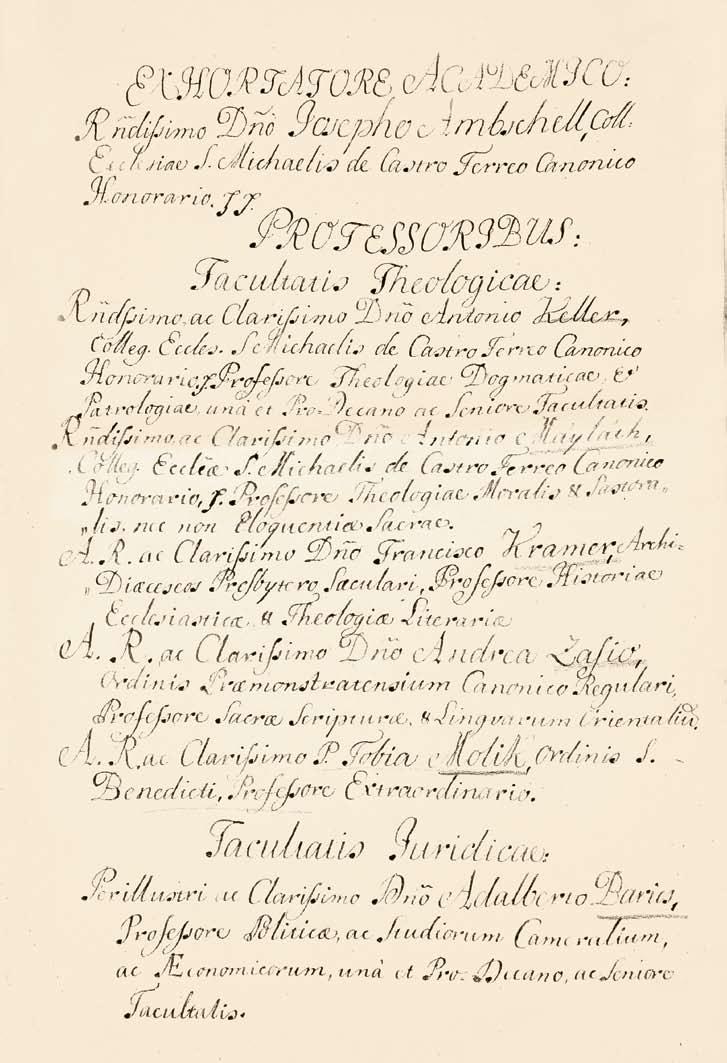 EXHORTATORE ACADEMICO:
Rñdißimo Dño Josepho Ambschell, Coll:
Ecclesiae S. Michaelis de Castro Ferreo Canonico
Honorario. pp.
PROFESSORIBUS:
Facultatis Theologicae:
Rñdßimo, ac Clarißimo Dño Antonio Keller,
Colleg. Eccles. S. Michaelis de Castro Ferreo Canonico
Honorario, p. Profeßore Theologiae Dogmaticae, &
Patrologiae, unà et Pro-Decano ac Seniore Facultatis.
Rñdißimo, ac Clarißimo Dño Antonio Maÿláth,
Colleg. Eccleæ S. Michaelis de Castro Ferreo Canonico
Honorario, p. Profeßore Theologiae Moralis & Pastora„
„lis. nec non Eloquentiæ Sacrae.
A. R. ac Clarißimo Dño Francisco Kramer, Archi-
„Diæceseos Presbytero Sæculari, Profeßore Historiae
Ecclesiasticæ, & Theologiæ Literariæ
A. R. ac Clarißimo Dño Andrea Zasio,
Ordinis Præmonstratensium Canonico Regulari,
Profeßore Sacræ Scripturæ, & Linguarum Orientaliũ.
A. R. ac Clarißimo P. Tobia Molik, Ordinis S. -
Benedicti, Profeßore Extraordinario.
Facultatis Juridicae:
Perillustri ac Clarißimo Dño Adalberto Barits,
Profeßore Politicæ, ac Studiorum Cameralium,
ac Æconomicorum, unà et Pro-Decano, ac Seniore
Facultatis.